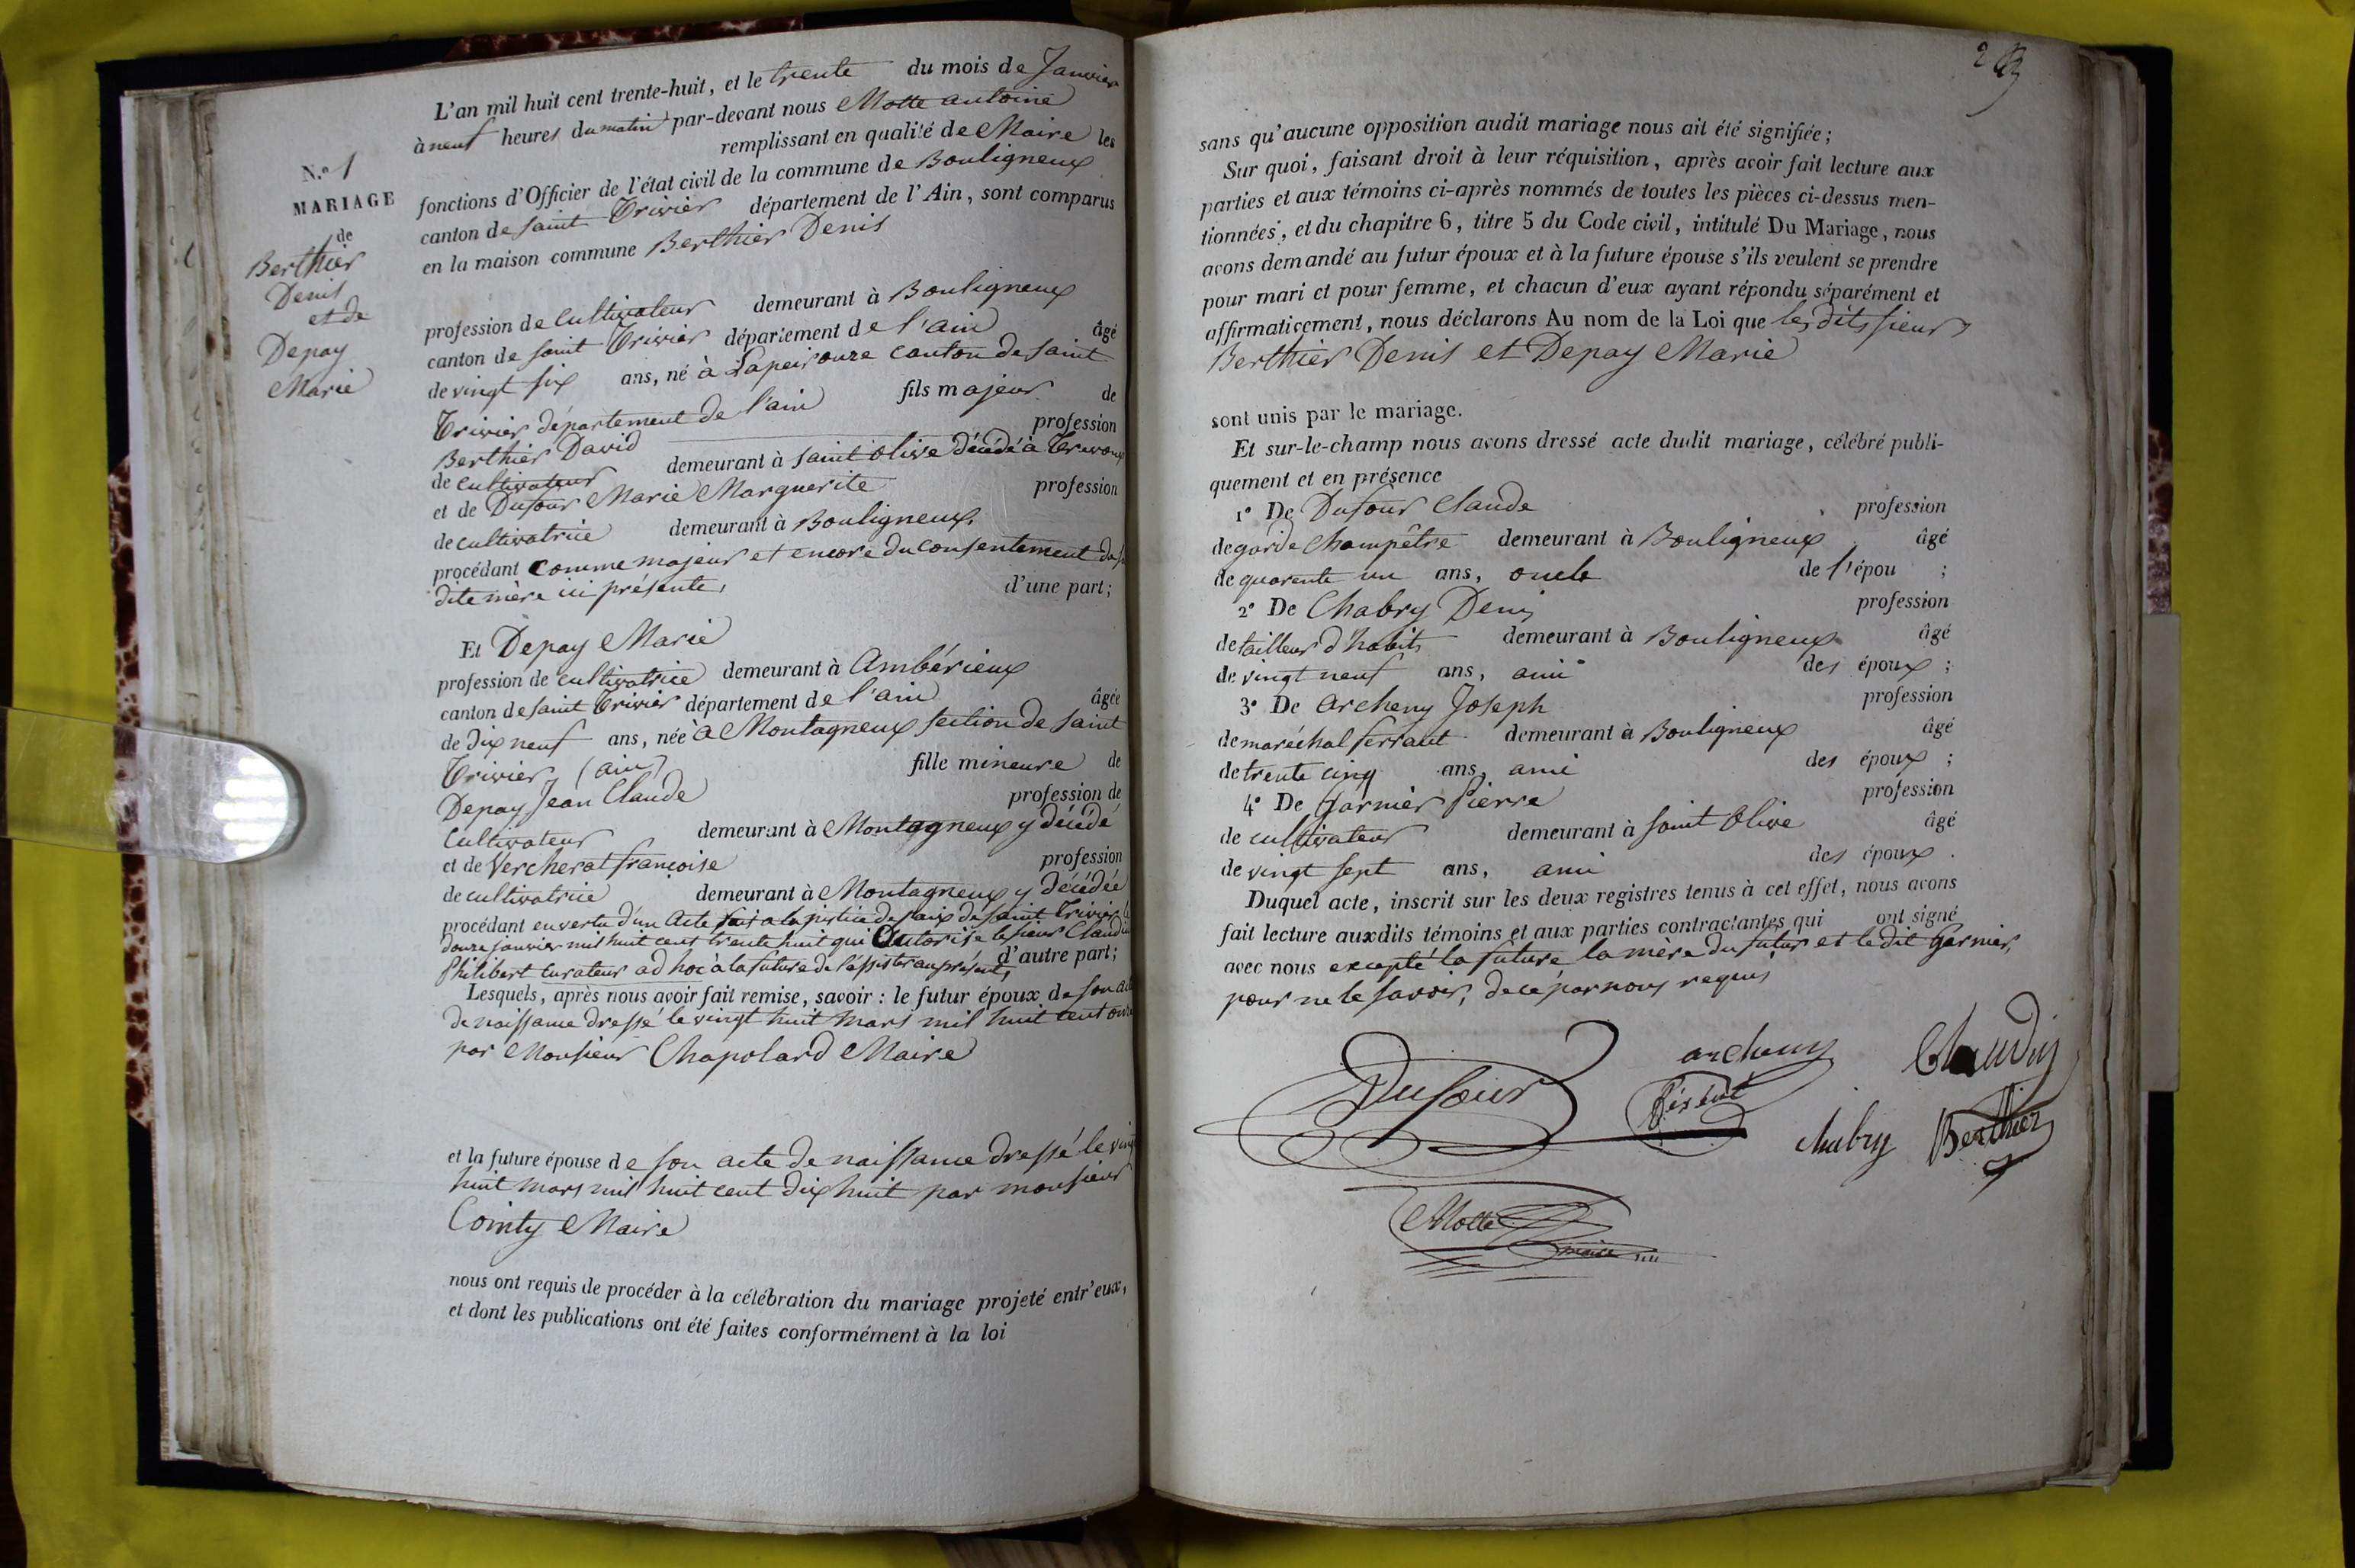 N.º 1
MARIAGE
de
Berthier
Denis
et de
Depay
Marie
L'an mil huit cent trente-huit, et le trente du mois de Janvier
à neuf heures du matin par-devant nous Motte antoine
remplissant en qualité de Maire les
fonctions d'Officier de l'état civil de la commune de Bouligneux
canton de saint Trivier département de l'Ain, sont comparus
en la maison commune Berthier Denis
profession de cultivateur demeurant à Bouligneux
canton de saint Trivier département de l'ain âgé
de vingt six ans, né à Lapeirouze canton de saint
Trivier département de l'ain fils majeur de
Berthier David profession
de cultivateur demeurant à saint Olive décédé à Trevoux
et de Dufour Marie Marguerite profession
de cultivatrice demeurant à Bouligneux,
procédant comme majeur et encore du consentement de sa
dite mère ici présente, d'une part;
Et Depay Marie
profession de cultivatrice demeurant à Ambérieux
canton de saint Trivier département de l'ain âgée
de dix neuf ans, née à Montagneux section de saint
Trivier (ain) fille mineure de
Depay Jean Claude profession de
cultivateur demeurant à Montagneux y décédé
et de Vercherat françoise profession
de cultivatrice demeurant à Montagneux y décédée
procédant en vertu d'un acte fait a la justice de paix de saint Trivier le
douze janvier mil huit cent trente huit qui Autorise le sieur Claudin
Philibert curateur ad hoc à la future de l'assister au présent, d'autre part;
Lesquels, après nous avoir fait remise, savoir : le futur époux de son acte
de naissance dressé le vingt huit mars mil huit cent onze
par Monsieur Chapolard Maire
et la future épouse de son acte de naissance dressé le vingt
huit mars mil huit cent dix huit par monsieur
Cointy Maire
nous ont requis de procéder à la célébration du mariage projeté entr'eux,
et dont les publications ont été faites conformément à la loi
sans qu'aucune opposition audit mariage nous ait été signifiée;
Sur quoi, faisant droit à leur réquisition, après avoir fait lecture aux
parties et aux témoins ci-après nommés de toutes les pièces ci-dessus men-
tionnées, et du chapitre 6, titre 5 du Code civil, intitulé Du Mariage, nous
avons demandé au futur époux et à la future épouse s'ils veulent se prendre
pour mari et pour femme, et chacun d'eux ayant répondu séparément et
affirmativement, nous déclarons Au nom de la Loi que les dits sieurs
Berthier Denis et Depay Marie
sont unis par le mariage.
Et sur-le-champ nous avons dressé acte dudit mariage, célébré publi-
quement et en présence
1º De Dufour Claude profession
de garde champêtre demeurant à Bouligneux âgé
de quarente un ans, oncle de l'épou ;
2º De Chabry Denis profession
de tailleur d'habits demeurant à Bouligneux âgé
de vingt neuf ans, ami des époux ;
3º De Archeny Joseph profession
de maréchal ferrant demeurant à Bouligneux âgé
de trente cinq ans, ami des époux ;
4º De Garnier Pierre profession
de cultivateur demeurant à saint Olive âgé
de vingt sept ans, ami des époux .
Duquel acte, inscrit sur les deux registres tenus à cet effet, nous avons
fait lecture auxdits témoins et aux parties contractantes qui ont signé
avec nous excepté la future la mère du futur et le dit Garnier,
pour ne le savoir, de ce par nous requis
Dufour archeny Claudin
chabry Berthier
Motte maire